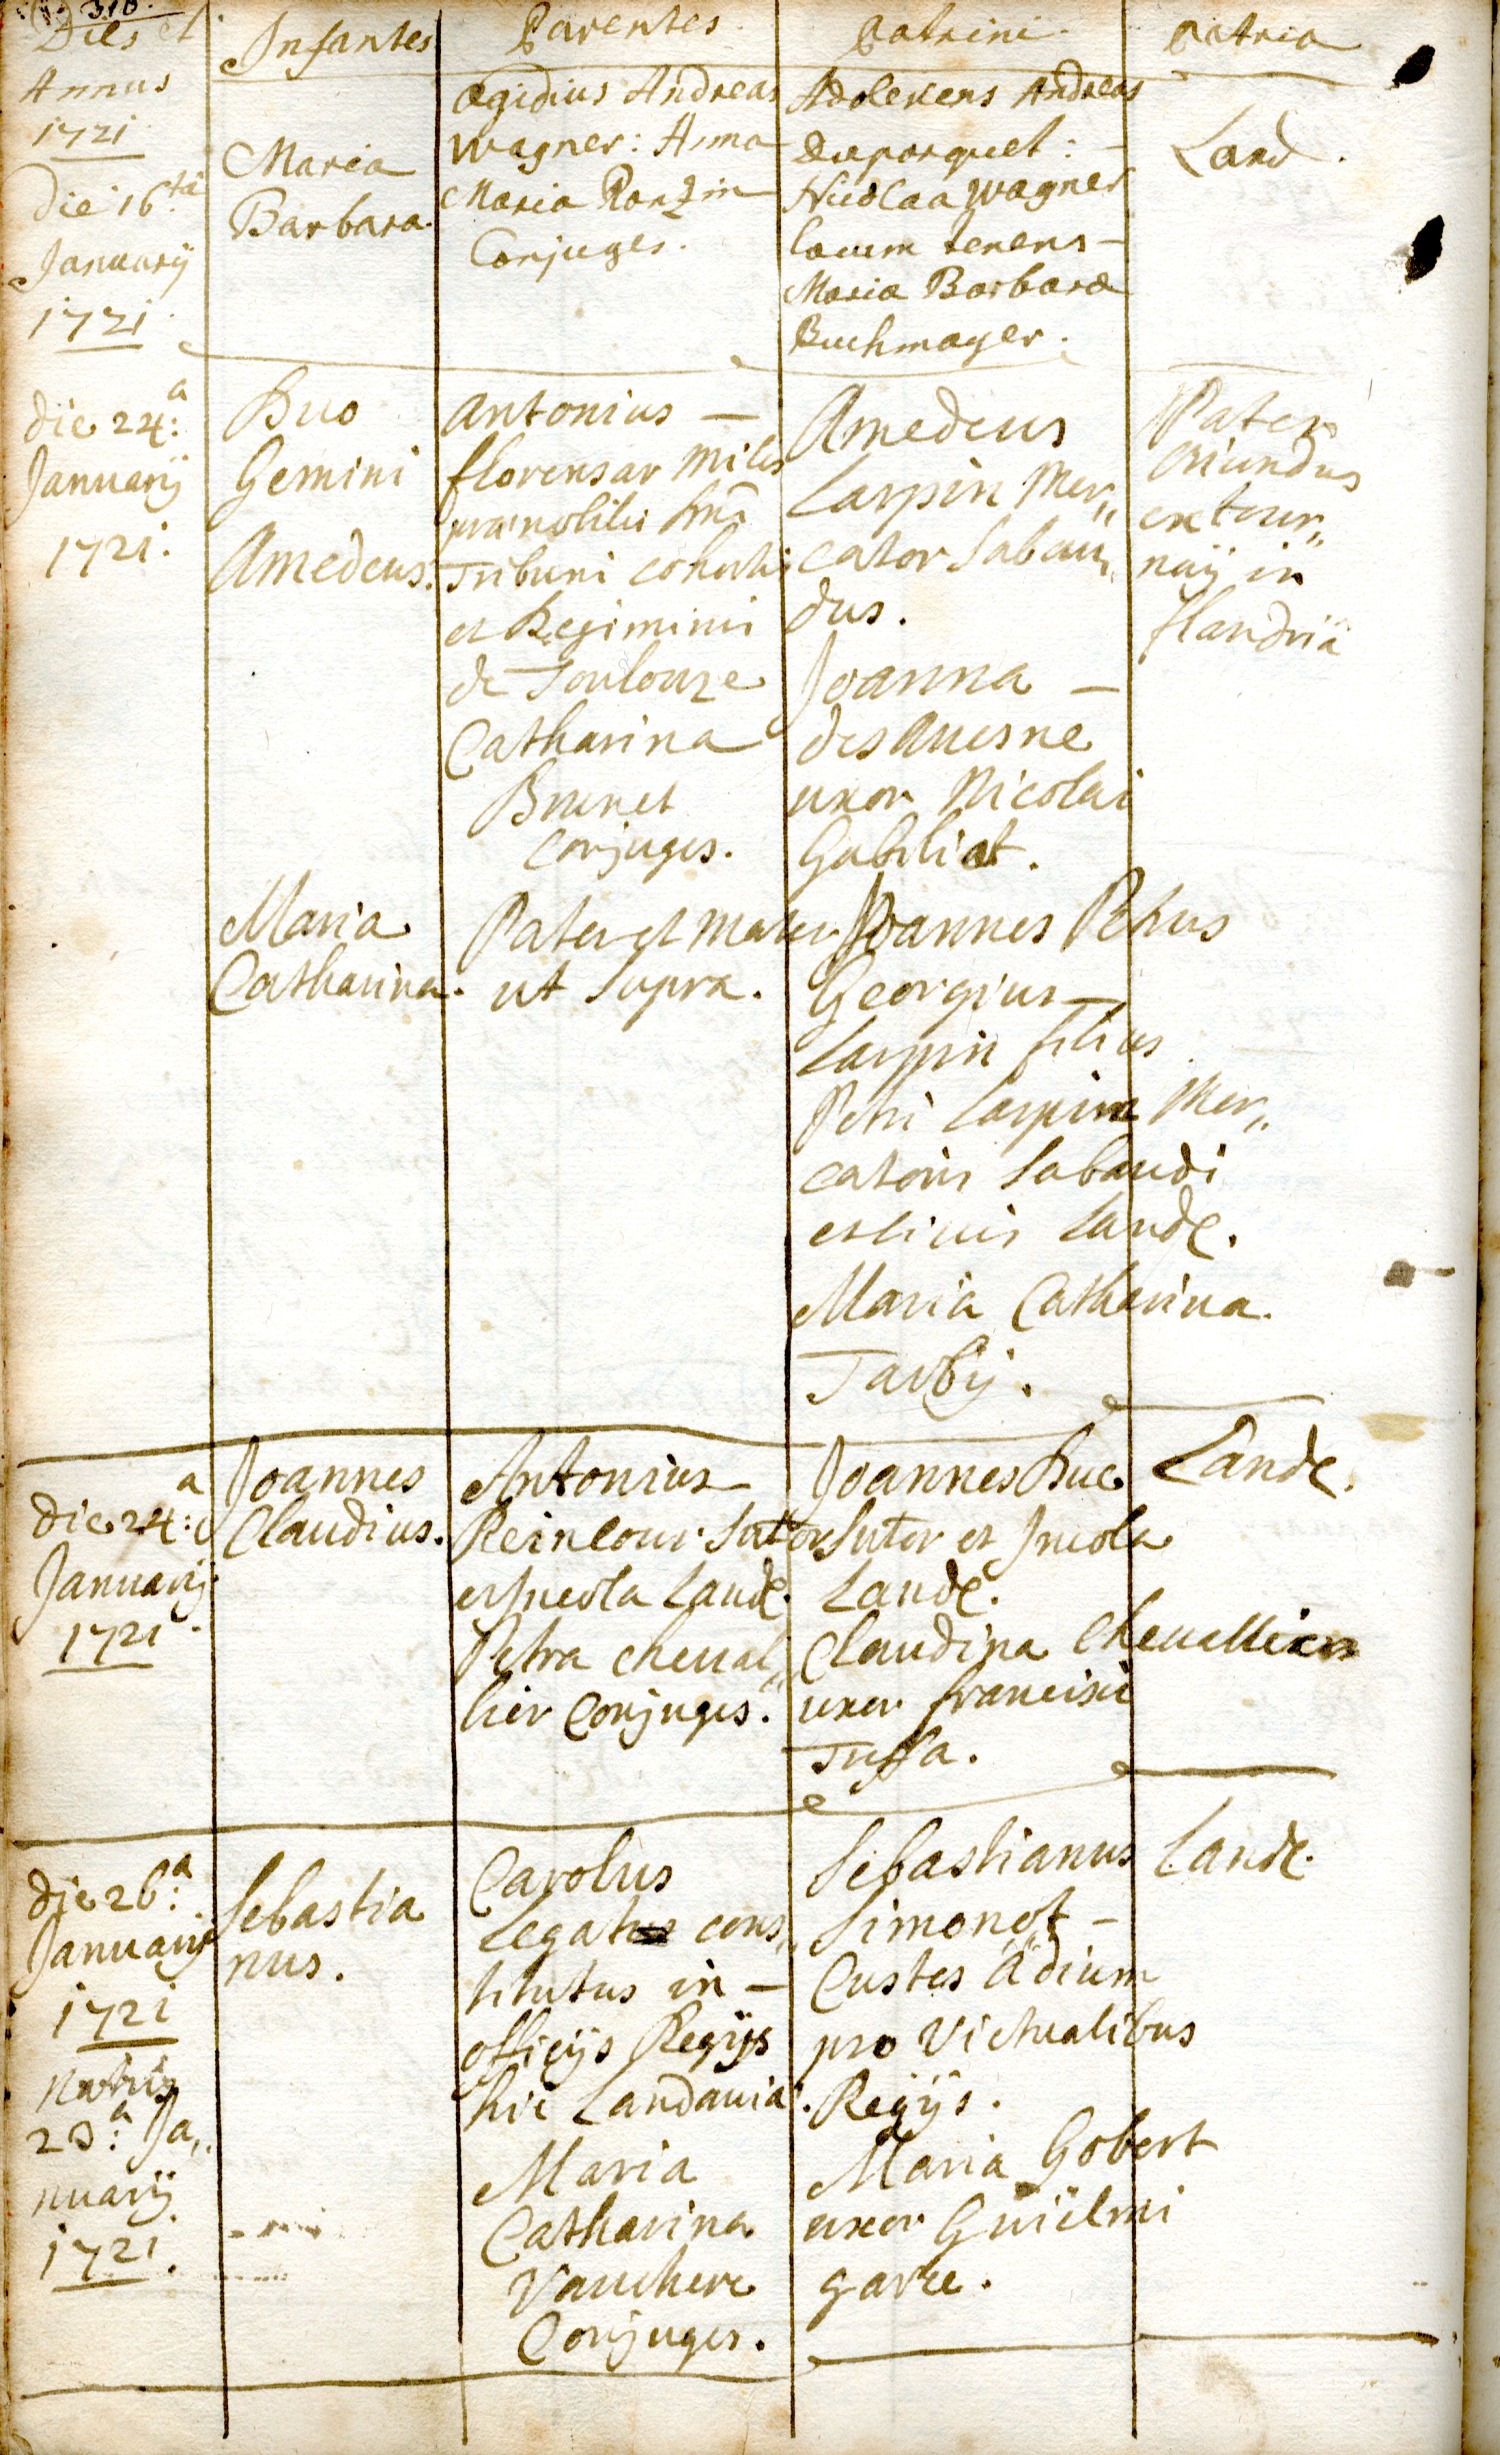 310.
Dies et
Annus
1721
Infantes
Parentes.
Patrini.
Patria
Die 16ta
Januarij
1721.
Maria
Barbara.
Ægidius Andreas
Wagner: Anna
Maria
Conjuges.
Adolescens Andreas
Duparquet: –
Nicolaa Wagner
locum tenens –
Maria Barbara
Buchmayer.
Land.
die 24:a
Januarij
1721.
Duo
Gemini
Amedeus.
Antonius –
florensar miles
prænobilis
Tribuni cohortis
et Regiminis
de Toulouze
Catharina
Brunet
conjuges.
Amedeus
Laspin Mer„
cator Sabau„
dus.
Joanna –
desAuesne
uxor Nicolai
Gabiliot.
Pater
Oriundus
ex tour„
naÿ in
flandriä
Maria
Catharina.
Pater et mater
ut supra.
Joannes Petrus
Georgius –
Laspin filius
Petri Laspin Mer„
catoris Sabaudi
et civis Landę.
Maria Catharina
Tarbÿ.
die 24:a
Januarij
1721.
Joannes
Claudius.
Antonius –
Reincour Sutor
et Incola Landę.
Petra cheual„
lier Conjuges.
Joannes Duc
Sutor et Incola
Landę.
Claudina Cheuallier
uxor francisci
Tussa.
Landę.
die 26:a
Januarij
1721
natus
23:a Ja„
nuarij
1721.
Sebastia
nus.
Carolus
Legat cons„
titutus in –
officijs Regijs
hic Landauiä.
Maria
Catharina
Vauchere
Conjuges.
Sebastianus
Simonot –
Custos Ädium
pro Victualibus
Regijs.
Maria Gobert
uxor Guilmi
garce.
Landę.